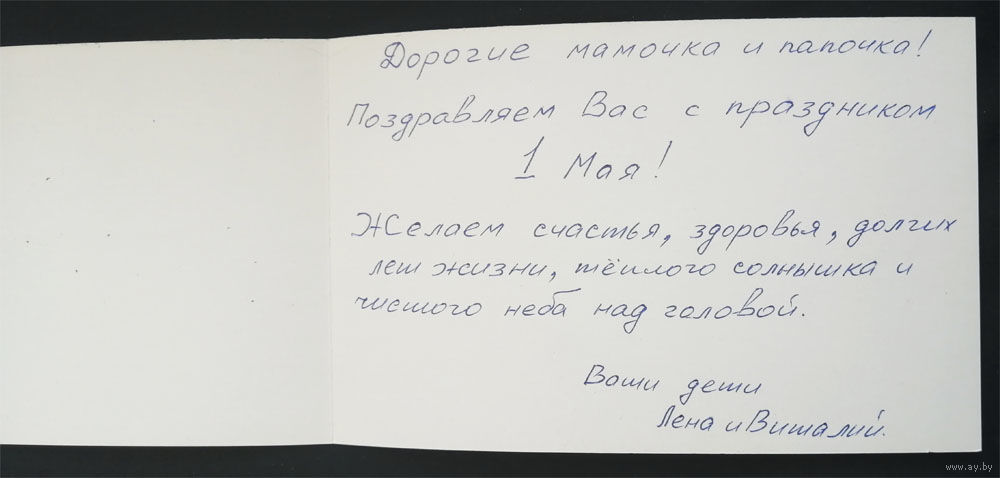 Дорогие мамочка и папочка!
Поздравляем Вас с праздником
1 Мая!
Желаем счастья, здоровья, долгих
лет жизни, тёплого солнышка и
чистого неба над головой.
Ваши дети
Лена и Виталий.
www.ay.by